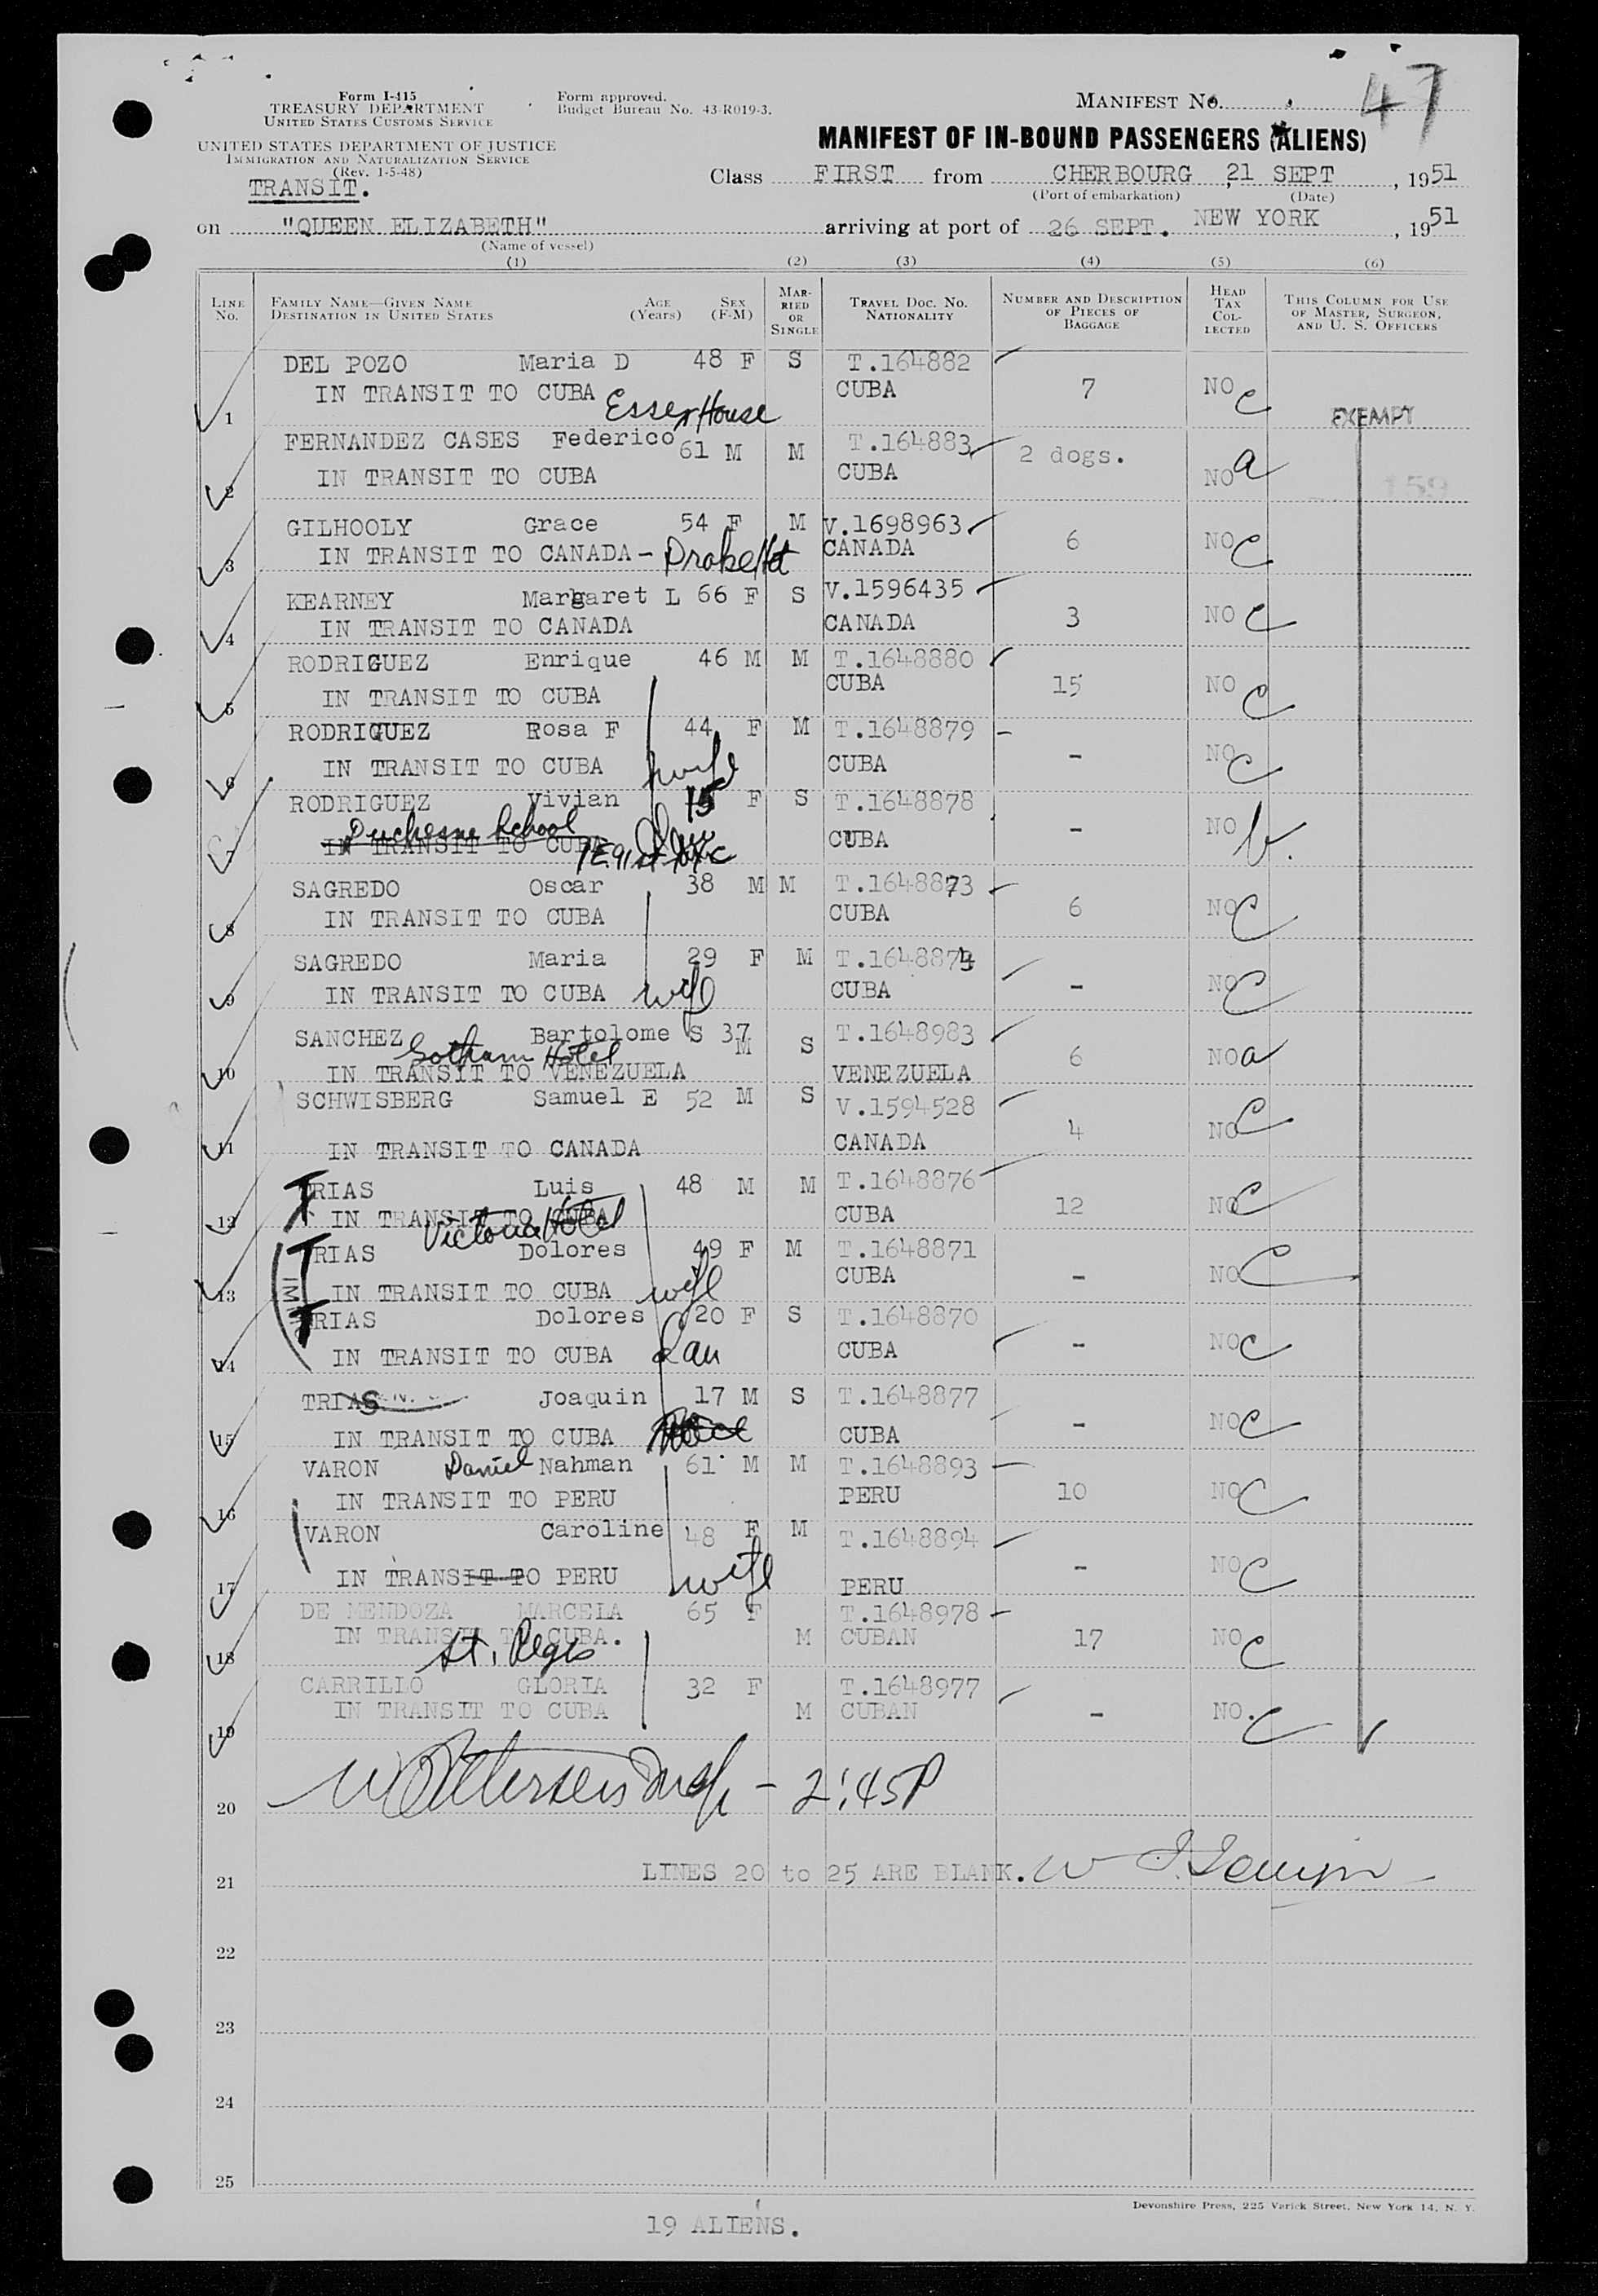 47
Form I-415
TREASURY DEPARTMENT
UNITED STATES CUSTOMS SERVICE
Form approved.
Budget Bureau No. 43-R019-3.
MANIFEST No.
UNITED STATES DEPARTMENT OF JUSTICE
IMMIGRATION AND NATURALIZATION SERVICE
(Rev. 1-5-48)
MANIFEST OF IN-BOUND PASSENGERS (ALIENS)
TRANSIT.
Class FIRST from CHERBOURG, 21 SEPT, 1951
(Port of embarkation) (Date)
on "QUEEN ELIZABETH" arriving at port of NEW YORK 26 SEPT., 1951
(Name of vessel)
(1) (2) (3) (4) (5) (6)
LINE No. FAMILY NAME—GIVEN NAME DESTINATION IN UNITED STATES AGE (Years) SEX (F-M) MARRIED OR SINGLE TRAVEL DOC. No. NATIONALITY NUMBER AND DESCRIPTION OF PIECES OF BAGGAGE HEAD TAX COLLECTED THIS COLUMN FOR USE OF MASTER, SURGEON, AND U. S. OFFICERS
DEL POZO Maria D 48 F S T.164882
1 IN TRANSIT TO CUBA Essex House CUBA 7 NO C EXEMPT
FERNANDEZ CASES Federico 61 M M T.164883 2 dogs.
2 IN TRANSIT TO CUBA CUBA NO a 159
GILHOOLY Grace 54 F M V.1698963
3 IN TRANSIT TO CANADA - Drake Hot CANADA 6 NO C
KEARNEY Margaret L 66 F S V.1596435
4 IN TRANSIT TO CANADA CANADA 3 NO C
RODRIGUEZ Enrique 46 M M T.1648880
5 IN TRANSIT TO CUBA CUBA 15 NO C
RODRIGUEZ Rosa F 44 F M T.1648879 -
6 IN TRANSIT TO CUBA wife CUBA - NO C
RODRIGUEZ Vivian 15 F S T.1648878
Duchesne School
7 IN TRANSIT TO CUBA 7 E 91 St NYC CUBA - NO b.
SAGREDO Oscar 38 M M T.1648873
8 IN TRANSIT TO CUBA CUBA 6 NO C
SAGREDO Maria 29 F M T.1648874
9 IN TRANSIT TO CUBA wife CUBA - NO C
SANCHEZ Bartolome S 37 M S T.1648983
Gotham Hotel
10 IN TRANSIT TO VENEZUELA VENEZUELA 6 NO a
SCHWISBERG Samuel E 52 M S V.1594528
11 IN TRANSIT TO CANADA CANADA 4 NO C
TRIAS Luis 48 M M T.1648876
12 IN TRANSIT TO CUBA CUBA 12 NO C
Victoria Hotel
TRIAS Dolores 49 F M T.1648871
13 IN TRANSIT TO CUBA wife CUBA - NO C
TRIAS Dolores 20 F S T.1648870
14 IN TRANSIT TO CUBA dau CUBA - NO C
TRIAS Joaquin 17 M S T.1648877
15 IN TRANSIT TO CUBA CUBA - NO C
VARON Daniel Nahman 61 M M T.1648893
16 IN TRANSIT TO PERU PERU 10 NO C
VARON Caroline 48 F M T.1648894
17 IN TRANSIT TO PERU wife PERU - NO C
DE MENDOZA MARCELA 65 F T.1648978
18 IN TRANSIT TO CUBA. M CUBAN 17 NO C
St. Regis
CARRILLO GLORIA 32 F T.1648977
19 IN TRANSIT TO CUBA M CUBAN - NO. C
20 - 2:45P
21 LINES 20 to 25 ARE BLANK.
22
23
24
25
Devonshire Press, 225 Varick Street, New York 14, N. Y.
19 ALIENS.